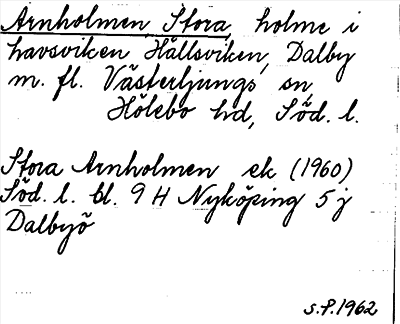 Arnholmen, Stora, holme i
havsviken Hållsviken, Dalby
m. fl. Västerljungs sn,
Hölebo hd, Söd. l.
Stora Arnholmen ek (1960)
Söd. l. bl. 9 H Nyköping 5 j
Dalbyö
S.P. 1962